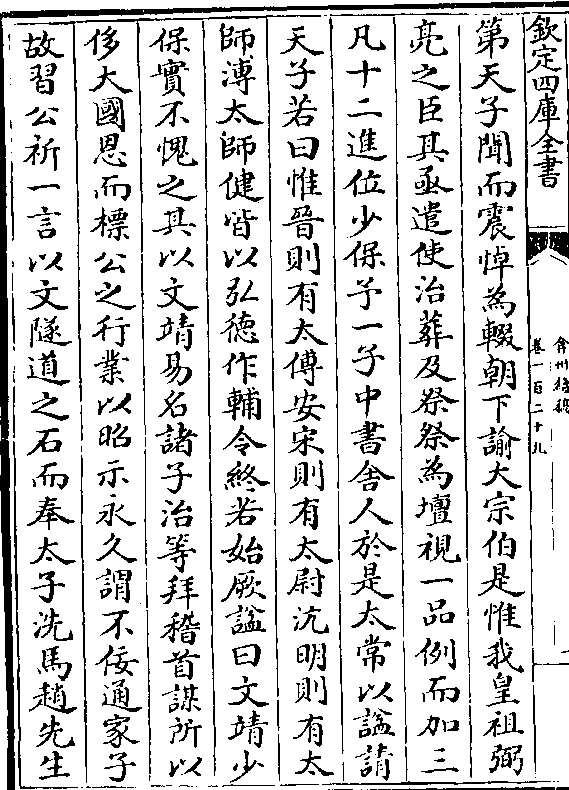 欽定四庫全書
弇州續稿
卷一百二十九
第天子聞而震悼為輟朝下諭大宗伯是惟我皇祖弼
亮之臣其亟遣使治葬及祭祭為壇視一品例而加三
凡十二進位少保予一子中書舍人於是太常以諡請
天子若曰惟晉則有太傅安宋則有太尉沆明則有太
師溥太師健皆以弘德作輔令終若始厥諡曰文靖少
保實不愧之其以文靖易名諸子治等拜稽首謀所以
侈大國恩而標公之行業以昭示永久謂不佞通家子
故習公祈一言以文隧道之石而奉太子洗馬趙先生